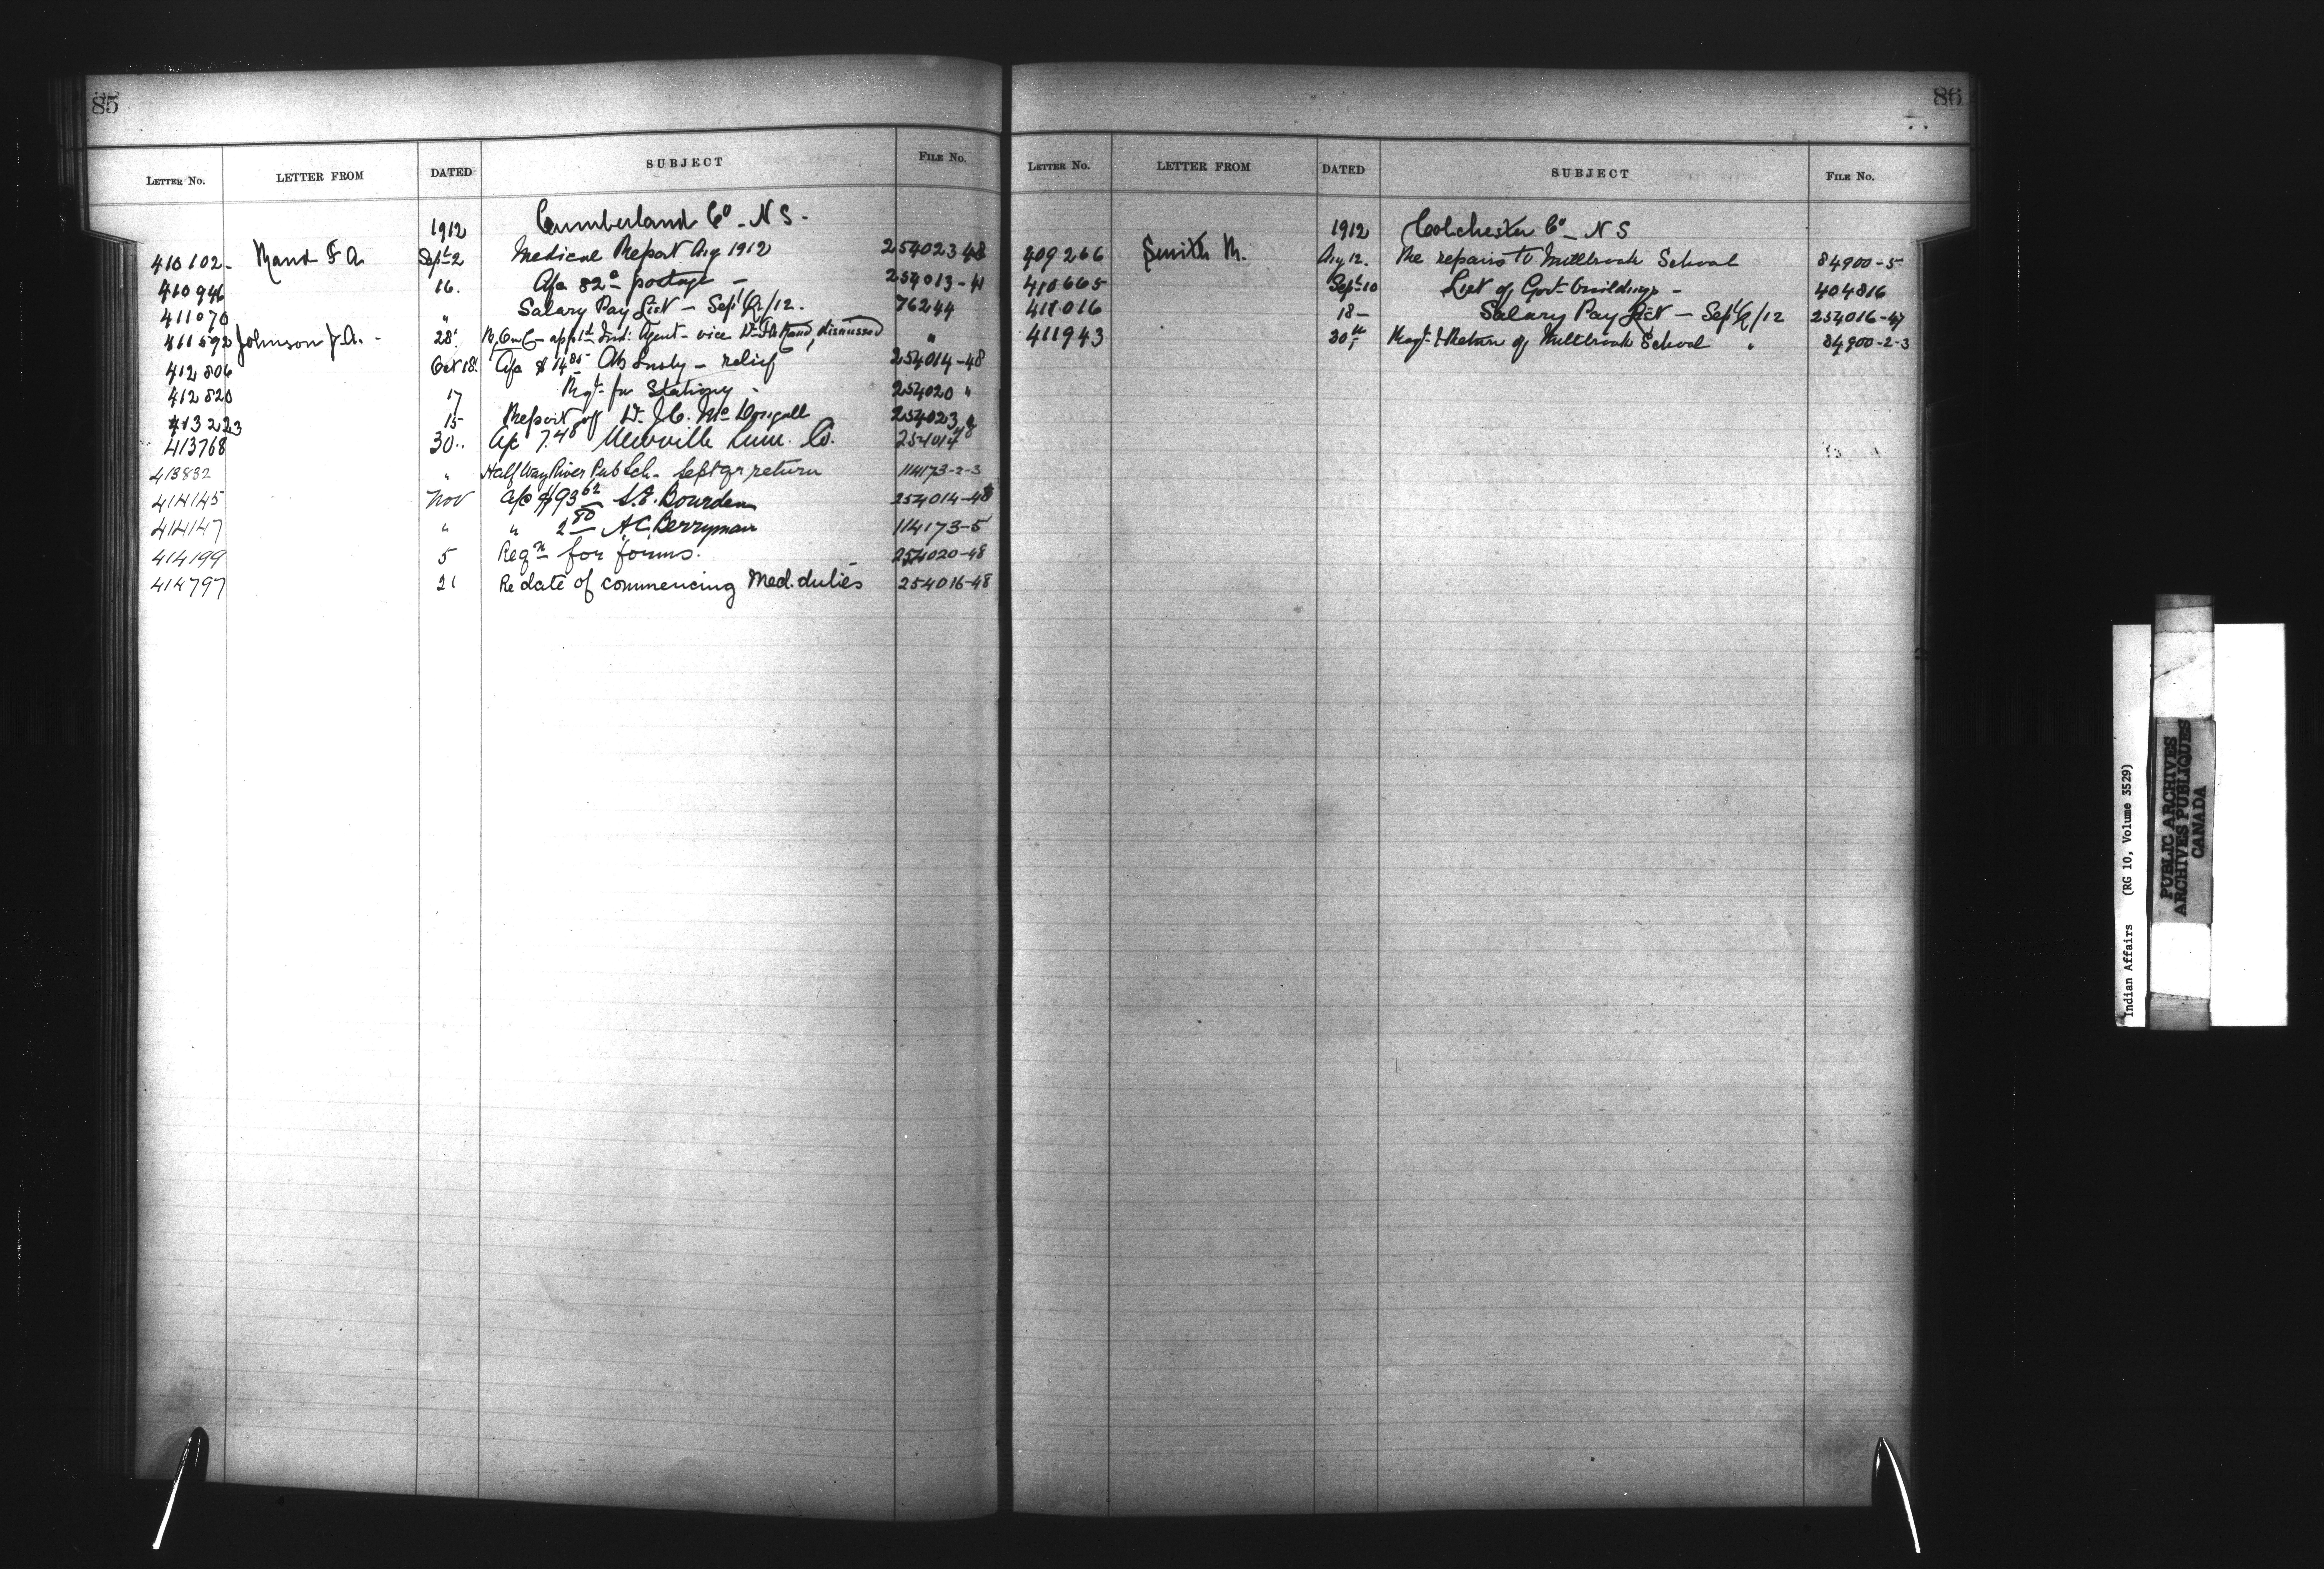 85
LETTER NO. LETTER FROM DATED SUBJECT FILE NO.
1912 Cumberland Co - N S -
410102 - Rand F A. Sept 2 Medical Report Aug 1912 254023-48
410946 16. A/c 82c postage - 254013-41
411070 " Salary Pay List - Sept Qr/12. 76244
411592 Johnson J. A. - 28 appt Ind. Agent - vice Dr F A Rand, dismissed "
412806 Oct 18. A/c $14 85 - relief 254014-48
412820 17 Rqt for Stationy - 254020 "
413223 15 Report of Dr. J. C. McDougall 254023 "
413768 30 .. A/c 7.48 Lum. Co. 254014 48
413832 " Half Way River Pub Sch. Sept qr return 114173-2-3
414145 Nov a/c $93 62 S. E. Bourden 254014-48
414147 " " 2 80 A. C. Berryman 114173-5
414199 5 Reqn for forms. 254020-48
414797 21 Re date of commencing Med. duties 254016-48
86
LETTER NO. LETTER FROM DATED SUBJECT FILE NO.
1912 Colchester Co - N S
409266 Smith R. Aug 12. Re repairs to Millbrook School 84900-5
410665 Sept 10 List of Govt buildings - 404816
411016 18 - Salary Pay List - Sept Q/12 254016-47
411943 30 & Return of Millbrook School " 84900-2-3
Indian Affairs (RG 10, Volume 3529)
PUBLIC ARCHIVES
ARCHIVES PUBLIQUES
CANADA